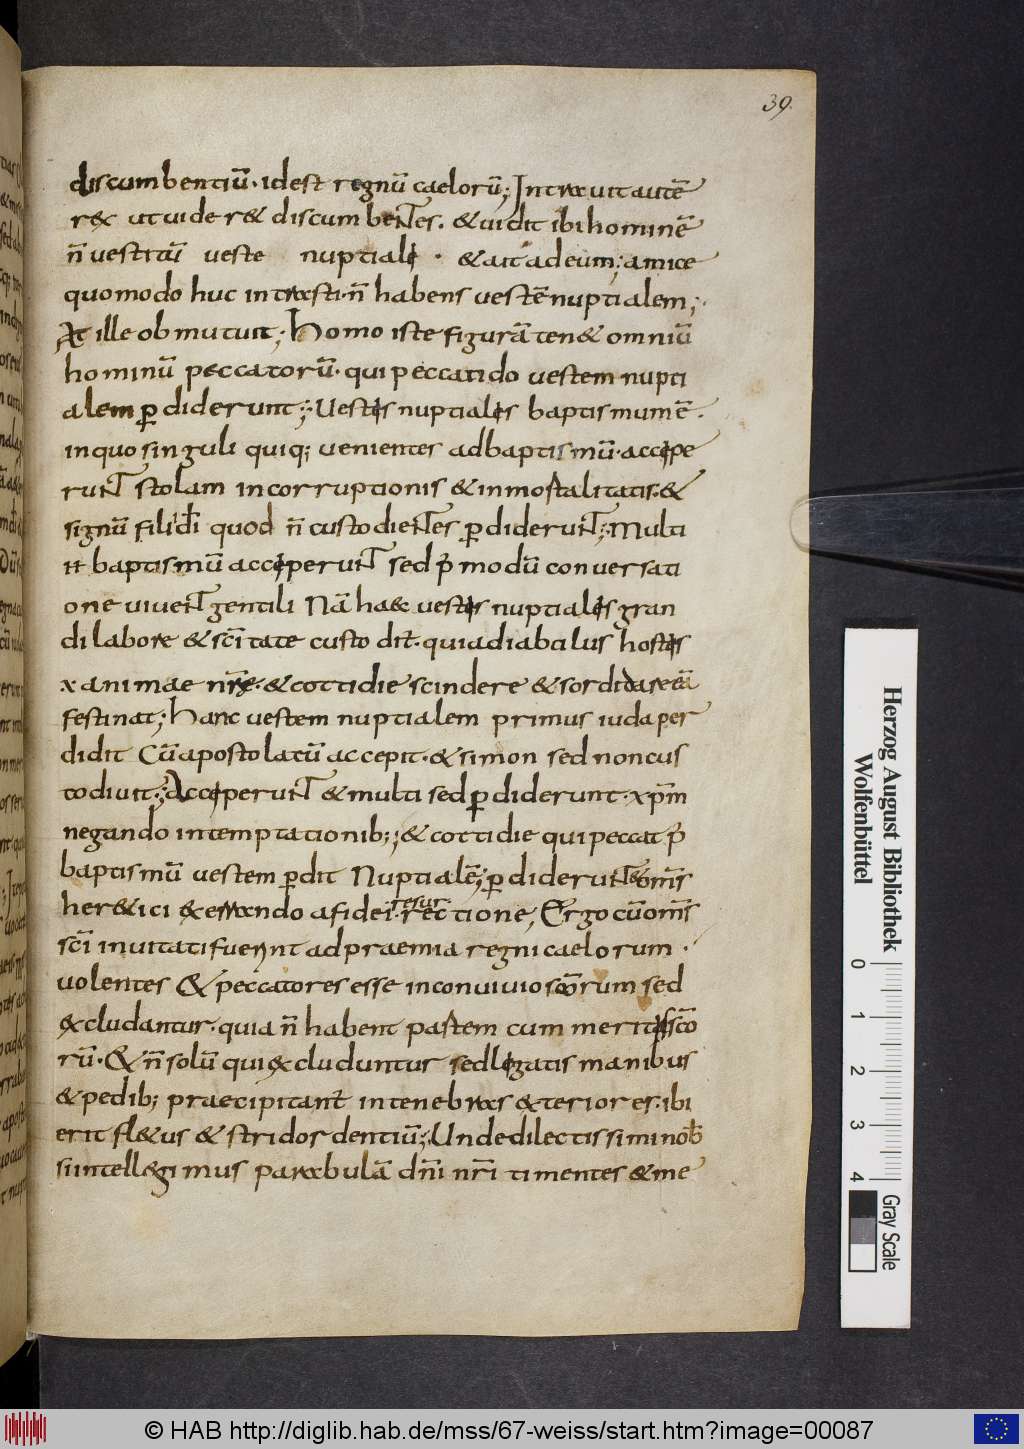 39.
discumbentiū· idest regnū caelorū; Intrauit autē
rex ut uideret discumbentes. & uidit ibi hominē
n̄ uestitū ueste nuptiali · & ait ad eum; amice
quomodo huc intrasti· n̄ habens uestē nuptialem;
At ille obmutuit; Homo iste figurā ten& omniū
hominū peccatorū· qui peccando uestem nupti
alem ꝑdiderunt; Uestis nuptialis baptismum ē.
in quo singuli quiq; uenientes ad baptismū· accipe
runt stolam incorruptionis & inmortalitatis· &
signū fili dī quod n̄ custodientes ꝑdiderunt; Multi
baptismū acceperunt sed p̄ modū conuersati
one uiuent gentili Nā haec uestis nuptialis gran
di labore & scītate custodit· quia diabulus hostis
animae nr̄e· & cottidie scindere & sordidare eā
festinat; Hanc uestem nuptialem primus iuda per
didit Cū apostolatū accepit· & simon sed non cus
todiuit; Acceperunt & multi sed ꝑdiderunt· xp̄m
negando in temptationib;; & cottidie qui peccat p̄
baptismū uestem ꝑdit Nuptialē; ꝑdiderunt & om̄s
her&ici & errando a fide resurrectione; Ergo cū om̄s
scī inuitati fuerunt ad praemia regni caelorum·
uolentes & peccatores esse in conuiuio scōrum sed
excludantur· quia n̄ habent partem cum meritis scō
rū· & n̄ solū qui excluduntur sed ligatis manibus
& pedib; praecipitant in tenebras exteriores· ibi
erit fl&us & stridor dentiū; Unde dilectissimi nob̄
si intellegimus parabulā dn̄i nr̄i timentes & me
Herzog August Bibliothek
Wolfenbüttel
0 1 2 3 4
Gray Scale
© HAB http://diglib.hab.de/mss/67-weiss/start.htm?image=00087